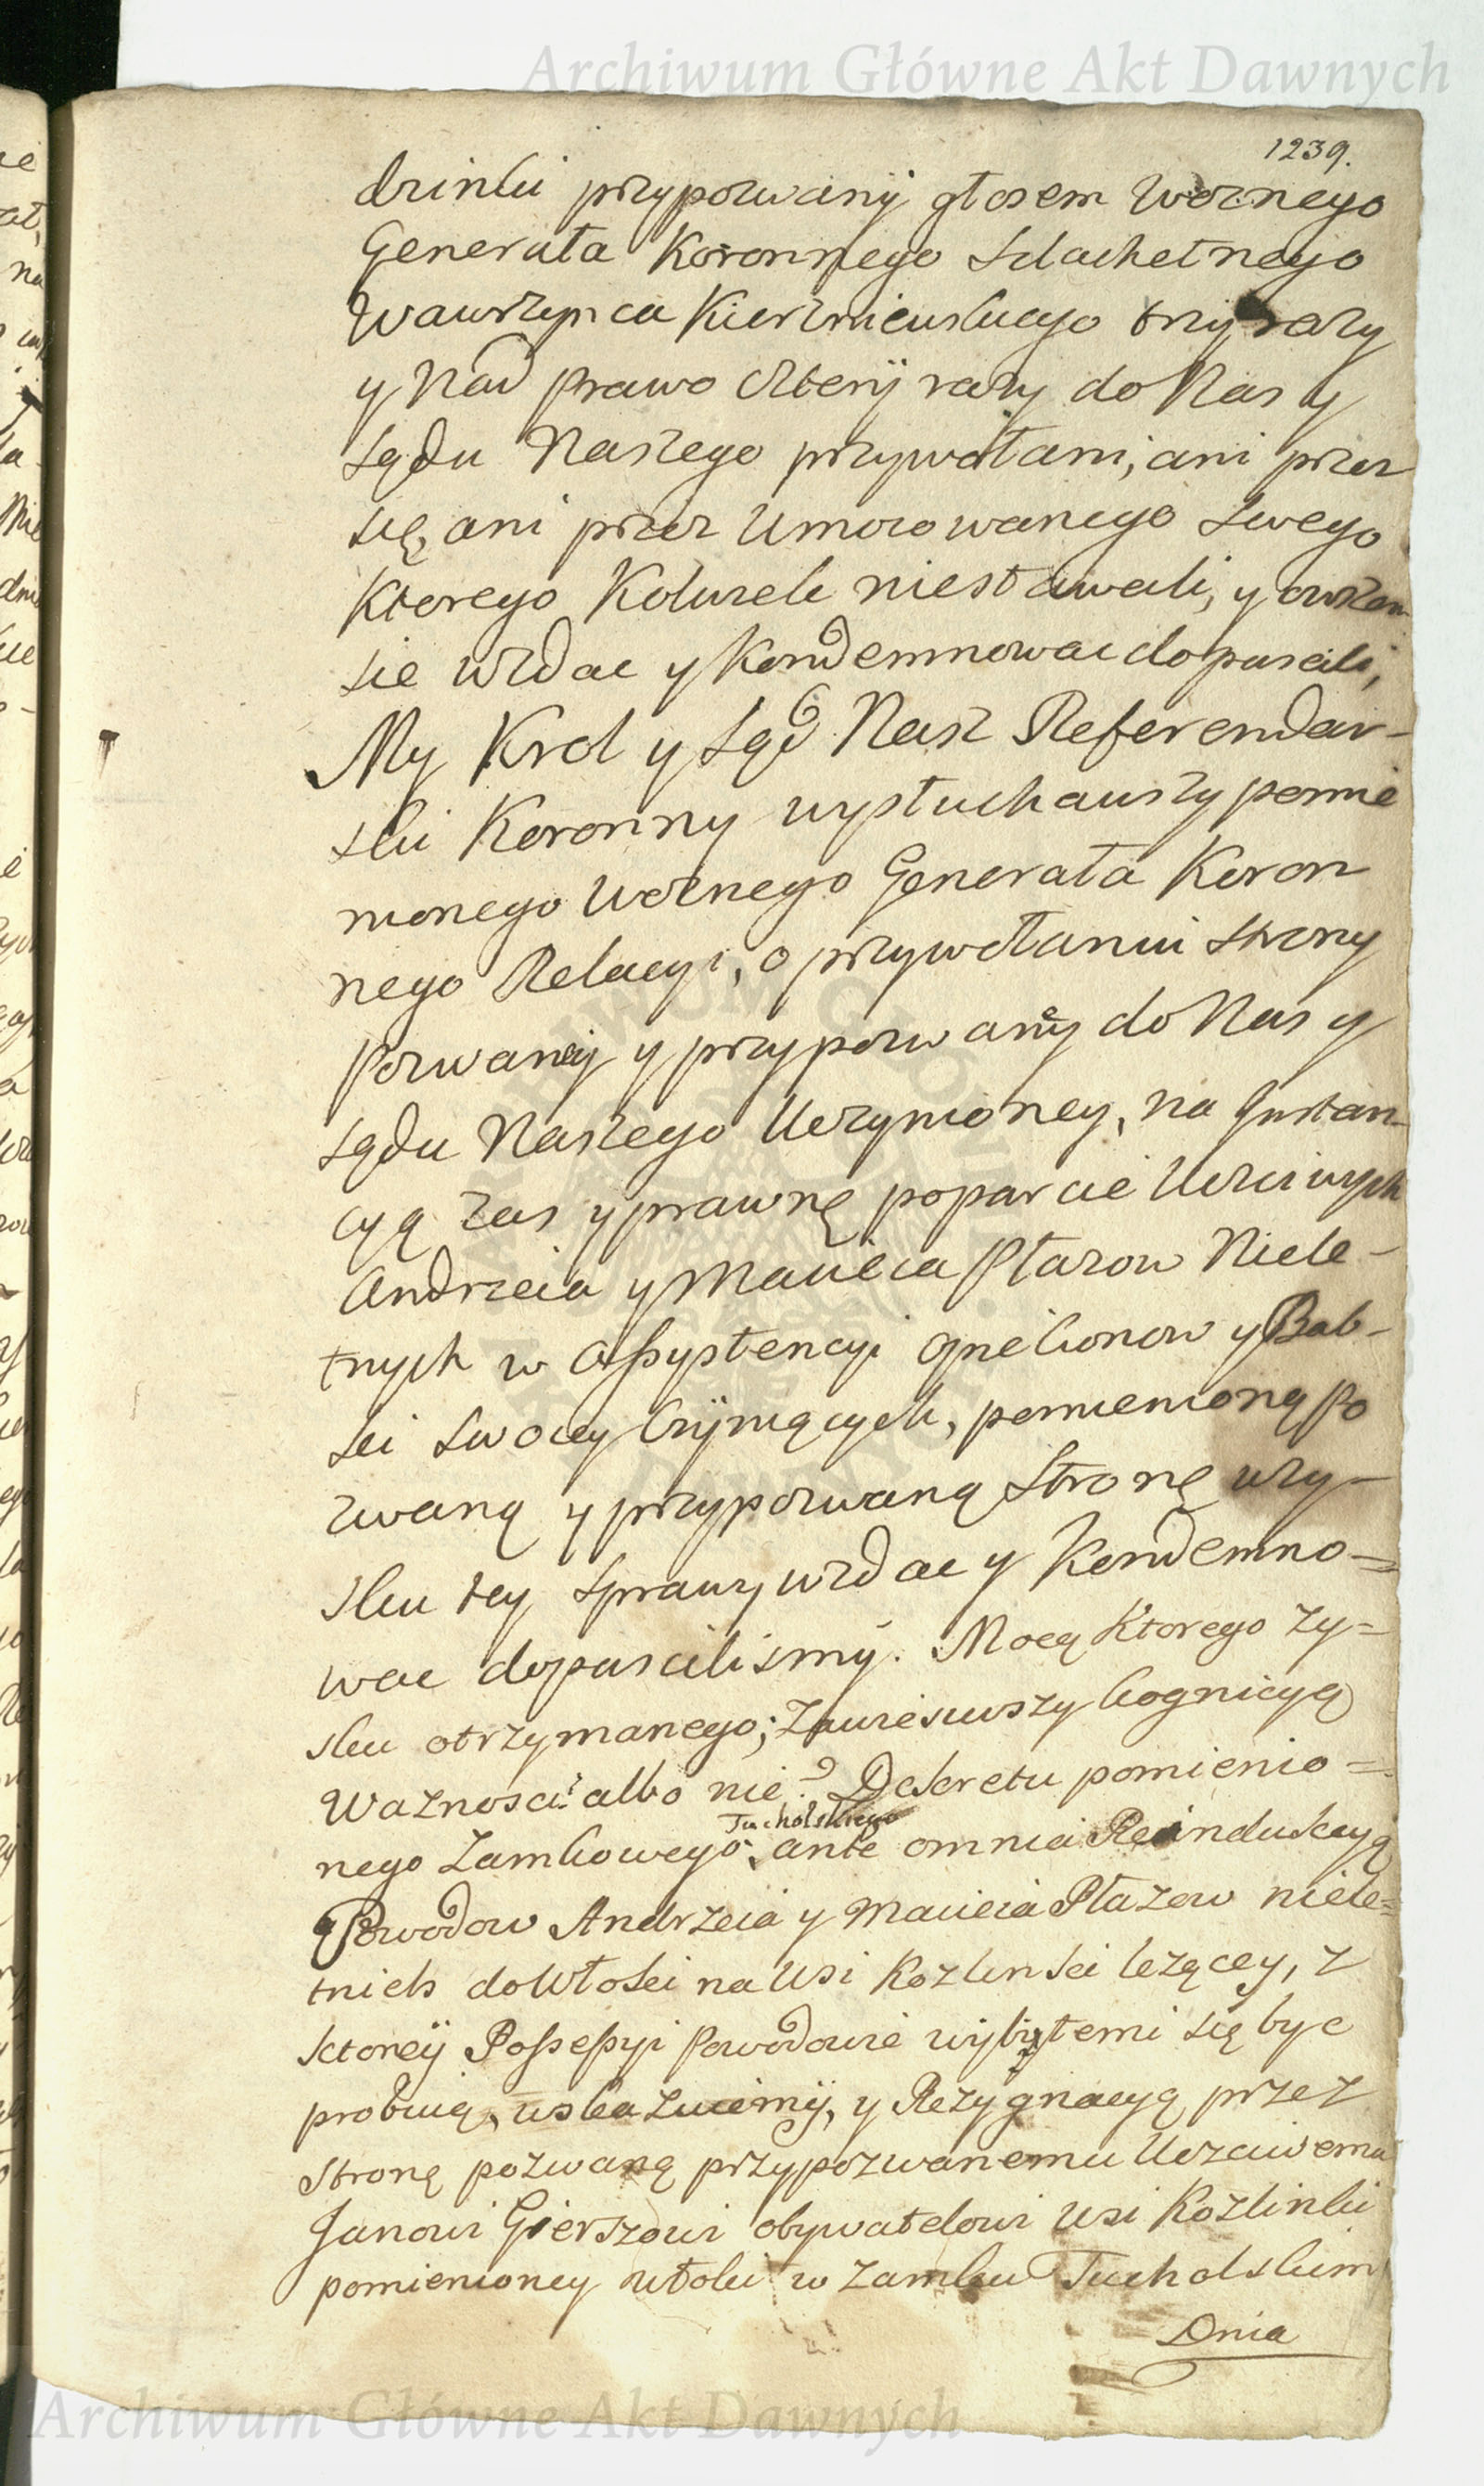 Archiwum Główne Akt Dawnych
1239.
drinki przypozwany głosem Woznego
Generała Koronnego Szlachetnego
Wawrzynca Kierzniewskiego trzy razy
y nad prawo cztery razy do Nas y
Sądu Naszego przywołani, ani przez
się, ani przez Umocowanego Swego
Ktorego Kolwiek niestawali, y owszem
sie wzdac y Kondemnowac dopuscili,
My Krol y Sąd Nasz Referendar-
ski Koronny wysłuchawszy pomie
nionego Woznego Generała Koron
nego Relacyi, o przywołaniu Strony
Pozwaney y przypozwaney do Nas y
Sądu Naszego Uczynioney, na Instan-
cyą zas y prawnę poparcie Uczciwych
Andrzeia y Macieia Płazow Niele-
tnych w Assystencyi Opiekunow y Bab-
ki Swoiey Czyniących, pomienioną Po
zwaną y przypozwaną Stronę wzy-
sku tey Sprawy wzdac y Kondemno=
wac dopuscilismy. Mocą Ktorego zy=
sku otrzymanego; Zawiesiwszy Kognicyą
Waznosci? albo nie? Dekretu pomienio=
Tucholskiego
nego Zamkowego; ante omnia Reindukcyą
Powodow Andrzeia y Macieia Płazow niele=
tnich do Włoki na Wsi Kozlinki leżącey, z
ktorey Possessyi Powodowie wybytemi się byc
probuią, wskazuiemy, y Rezygnacyą przez
Stronę pozwaną przypozwanemu Uczciwemu
Janowi Gierszowi obywatelowi Wsi Kozlinki
pomienioney włoki w Zamku Tucholskim
Dnia
Archiwum Główne Akt Dawnych